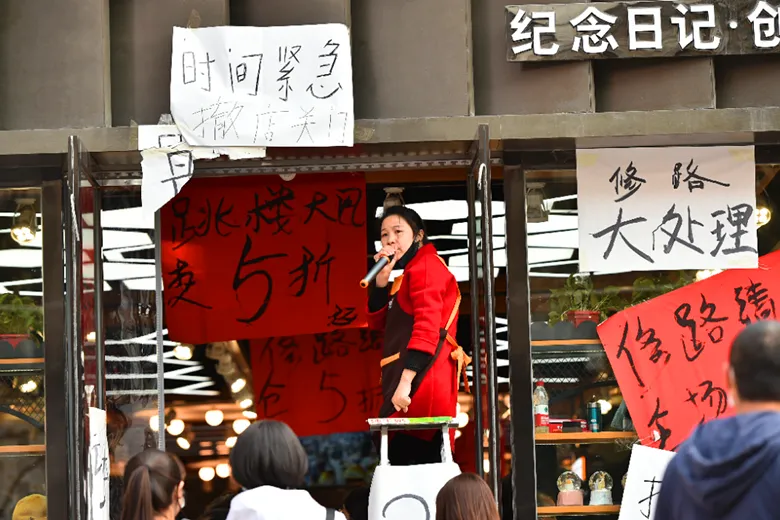 纪念日记·创
时间紧急
撤店关门
早
跳楼大甩
卖5折
起
修路
仓5
修路
大处理
修路
全场